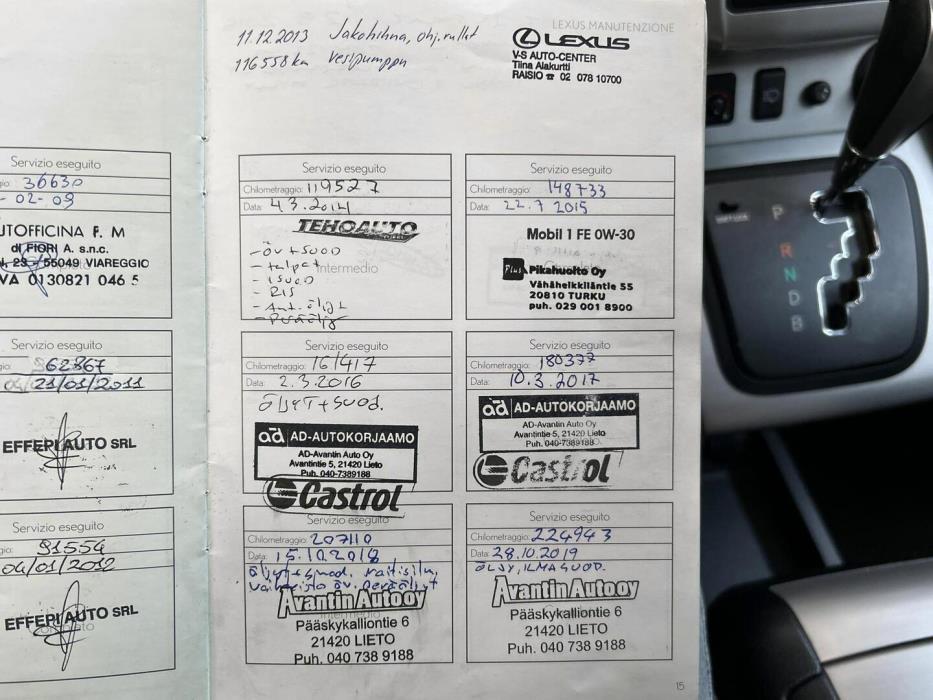 Servizio eseguito
36630
-02-09
UTOFFICINA F. M
di FIORI A. s.n.c.
23 - 55049 VIAREGGIO
VA 0130821 046 5
Servizio eseguito
62867
21/01/2011
EFFEPI AUTO SRL
Servizio eseguito
91554
04/01/2012
EFFEPI AUTO SRL
LEXUS MANUTENZIONE
11.12.2013 Jakohihna, ohj.rullat
116558km vesipumppu
LEXUS
V-S AUTO-CENTER
Tiina Alakurtti
RAISIO ☎ 02 078 10700
Servizio eseguito
Chilometraggio: 119527
Data: 4.3.2014
TEHOAUTO
- öv + suod
Intermedio
- RIS
Servizio eseguito
Chilometraggio: 148733
Data: 22.7 2015
Mobil 1 FE 0W-30
Plus Pikahuolto Oy
Vähäheikkiläntie 55
20810 TURKU
puh. 029 001 8900
Servizio eseguito
Chilometraggio: 161417
Data: 2.3.2016
öljyt + suod.
ad AD-AUTOKORJAAMO
AD-Avantin Auto Oy
Avantintie 5, 21420 Lieto
Puh. 040-7389188
Castrol
Servizio eseguito
Chilometraggio: 180377
Data: 10.3.2017
ad AD-AUTOKORJAAMO
AD-Avantin Auto Oy
Avantintie 5, 21420 Lieto
Puh. 040-7389188
Castrol
Servizio eseguito
Chilometraggio: 207110
Data: 15.10.2018
öljyt + suod. raitisilm,
Avantin Auto oy
Pääskykalliontie 6
21420 LIETO
Puh. 040 738 9188
Servizio eseguito
Chilometraggio: 224943
Data: 28.10.2019
ÖLJY, ILMASUOD.
Avantin Auto oy
Pääskykalliontie 6
21420 LIETO
Puh. 040 738 9188
15
P
R
N
D
B